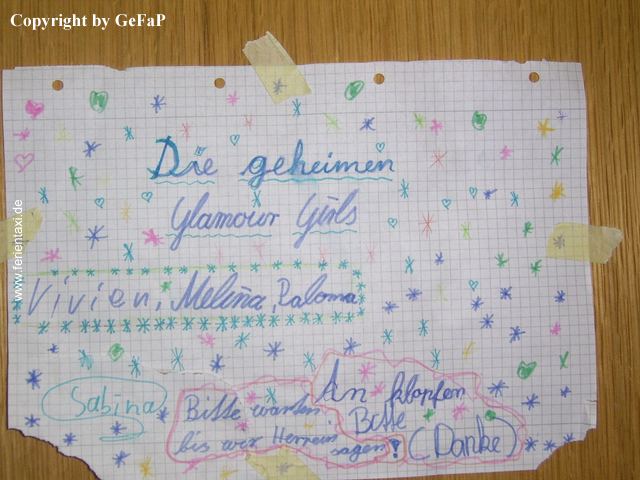 Copyright by GeFaP
www.ferientaxi.de
Die geheimen
Glamour Girls
Vivien, Melina, Paloma
Sabina
An klopfen
Bitte
(Danke)
Bitte warten
bis wir Herrein
sagen!